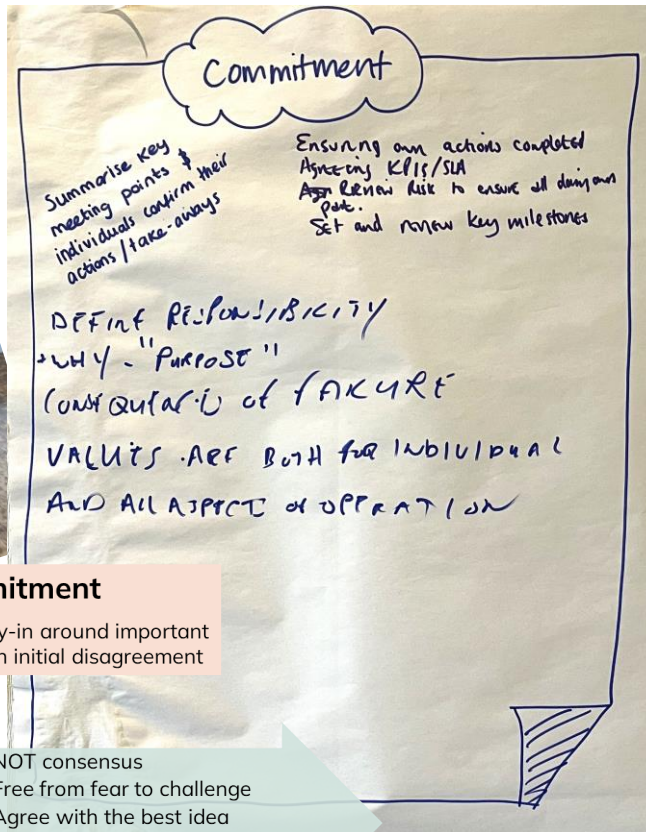 Commitment
Summarise Key
meeting points &
individuals confirm their
actions / take-aways
Ensuring own actions completed
Agreeing KPIs/SLA
Review Risk to ensure all doing own
part.
Set and review key milestones
DEFINE RESPONSIBILITY
WHY - "PURPOSE"
of FAILURE
VALUES ARE BOTH FOR INDIVIDUAL
AND ALL ASPECT OF OPERATION
mitment
y-in around important
n initial disagreement
NOT consensus
Free from fear to challenge
Agree with the best idea